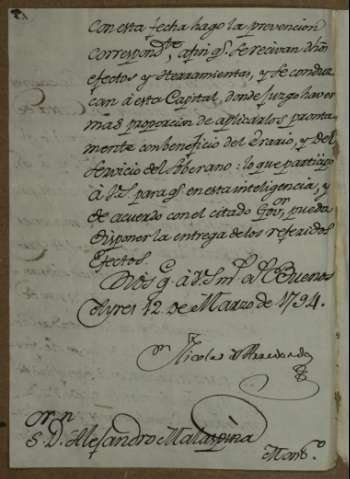 con esta fecha hago la prevencion
correspond.te, a fin q.e se recivan dhõs
efectos y Herramientas, y se conduz
can à esta Capital, donde juzgo haver
mas proporcion de aplicarlos pronta-
mente con beneficio del Erario, y del
servicio del Soberano: lo que participo
à V.S. para q.e en esta inteligencia, y
de acuerdo con el citado Gov.or pueda
disponer la entrega de los referidos
Efectos.
Dios g.e à V.S. m.s a.s Buenos
Ayres 12. de Marzo de 1794.
Nicolas de Arredondo
S. D. Alejandro Malaspina